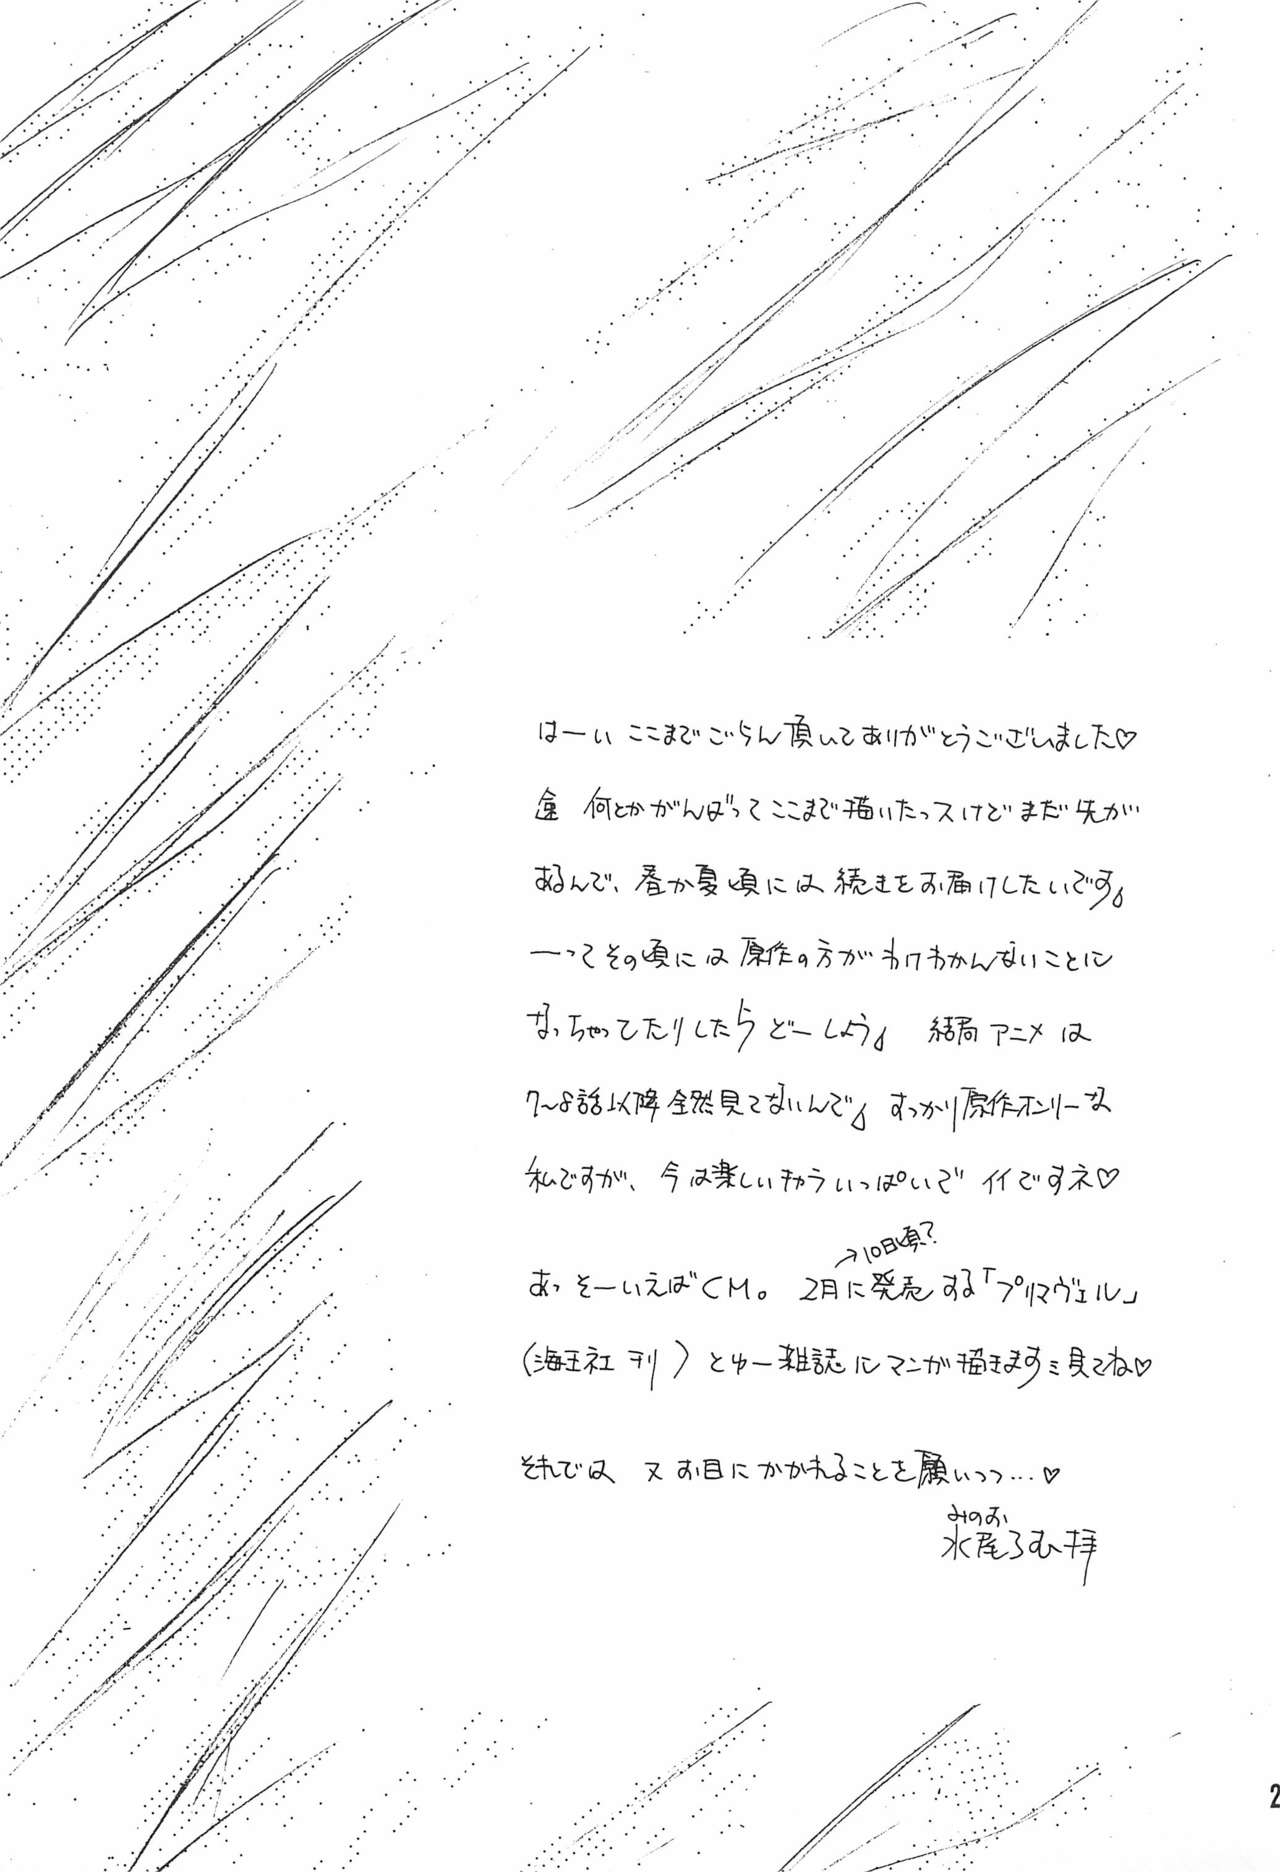 はーい ここまでごらん頂いてありがとうございました♡
何とかがんばってここまで描いたっスけどまだ先が
あるんで、春か夏頃には続きをお届けしたいです。
ーってその頃には原作の方がわけわかんないことに
なっちゃってたりしたらどーしよう。 結局アニメは
7〜8話以降全然見てないんで。 すっかり原作オンリーな
私ですが、今は楽しいキャラいっぱいでイイですネ♡
→10日頃?
あっそーいえばCM。 2月に発売する「プリマヴェル」
(海王社刊)とゆー雑誌にマンガ描きます 見てね♡
それでは 又お目にかかれることを願いつつ…♡
みのお
水尾ろむ拝
2